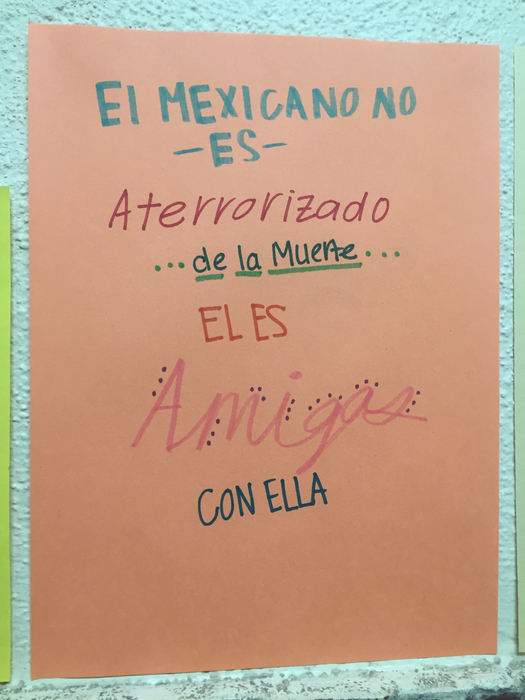 El MEXICANO NO
-ES-
Aterrorizado
...de la Muerte...
EL ES
Amigas
CON ELLA